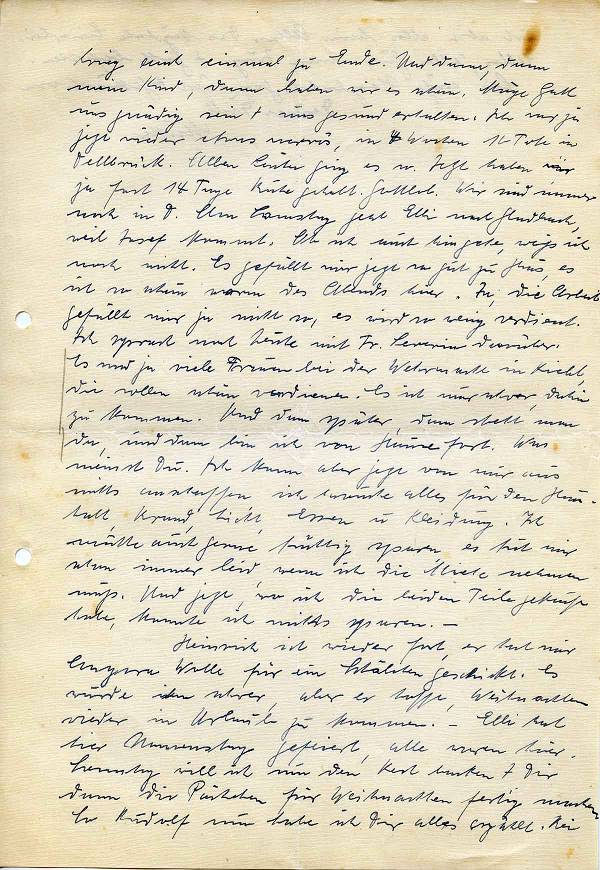 krieg auch einmal zu Ende. Und dann, dann
mein Kind, dann haben wir es schön. Möge Gott
uns gnädig sein + uns gesund erhalten. Ich war ja
jetzt wieder etwas nervös, in 4 Wochen 11 Tote in
Dellbrück. Allen Leuten ging es so. Jetzt haben wir
ja fast 14 Tage Ruhe gehabt. Gottlob. Wir sind immer
noch in D. Am Samstag geht Elli nach Gladbach,
weil Josef kommt. Ob ich mit hingehe, weiß ich
noch nicht. Es gefällt mir jetzt so gut zu Haus, es
ist so schön warm des Abends hier. Ja, die Arbeit
gefällt mir ja nicht so, es wird so wenig verdient.
Ich sprach noch heute mit Fr. Severin darüber.
Es sind ja viele Frauen bei der Wehrmacht in
die sollen schön verdienen. Es ist nur schwer, dahin
zu kommen. Und dann später, dann steht man
da, und dann bin ich von Hause fort. Was
meinst Du. Ich kann aber jetzt von mir aus
nichts anschaffen ich brauche alles für den Haus-
halt, Brand, Licht, Essen u Kleidung. Ich
möchte auch gerne tüchtig sparen es tut mir
schon immer leid, wenn ich die Miete nehmen
muß. Und jetzt, wo ich die beiden Teile gekauft
habe, konnte ich nichts sparen. —
Heinrich ist wieder fort, er hat mir
Angora Wolle für ein Schälchen geschickt. Es
wurde ihm schwer, aber er hofft, Weihnachten
wieder in Urlaub zu kommen. — Elli hat
hier Namenstag gefeiert, alle waren hier.
Samstag will ich nun den Rest backen + Dir
dann die Päckchen für Weihnachten fertig machen
So Rudolf nun habe ich Dir alles erzählt. Bei